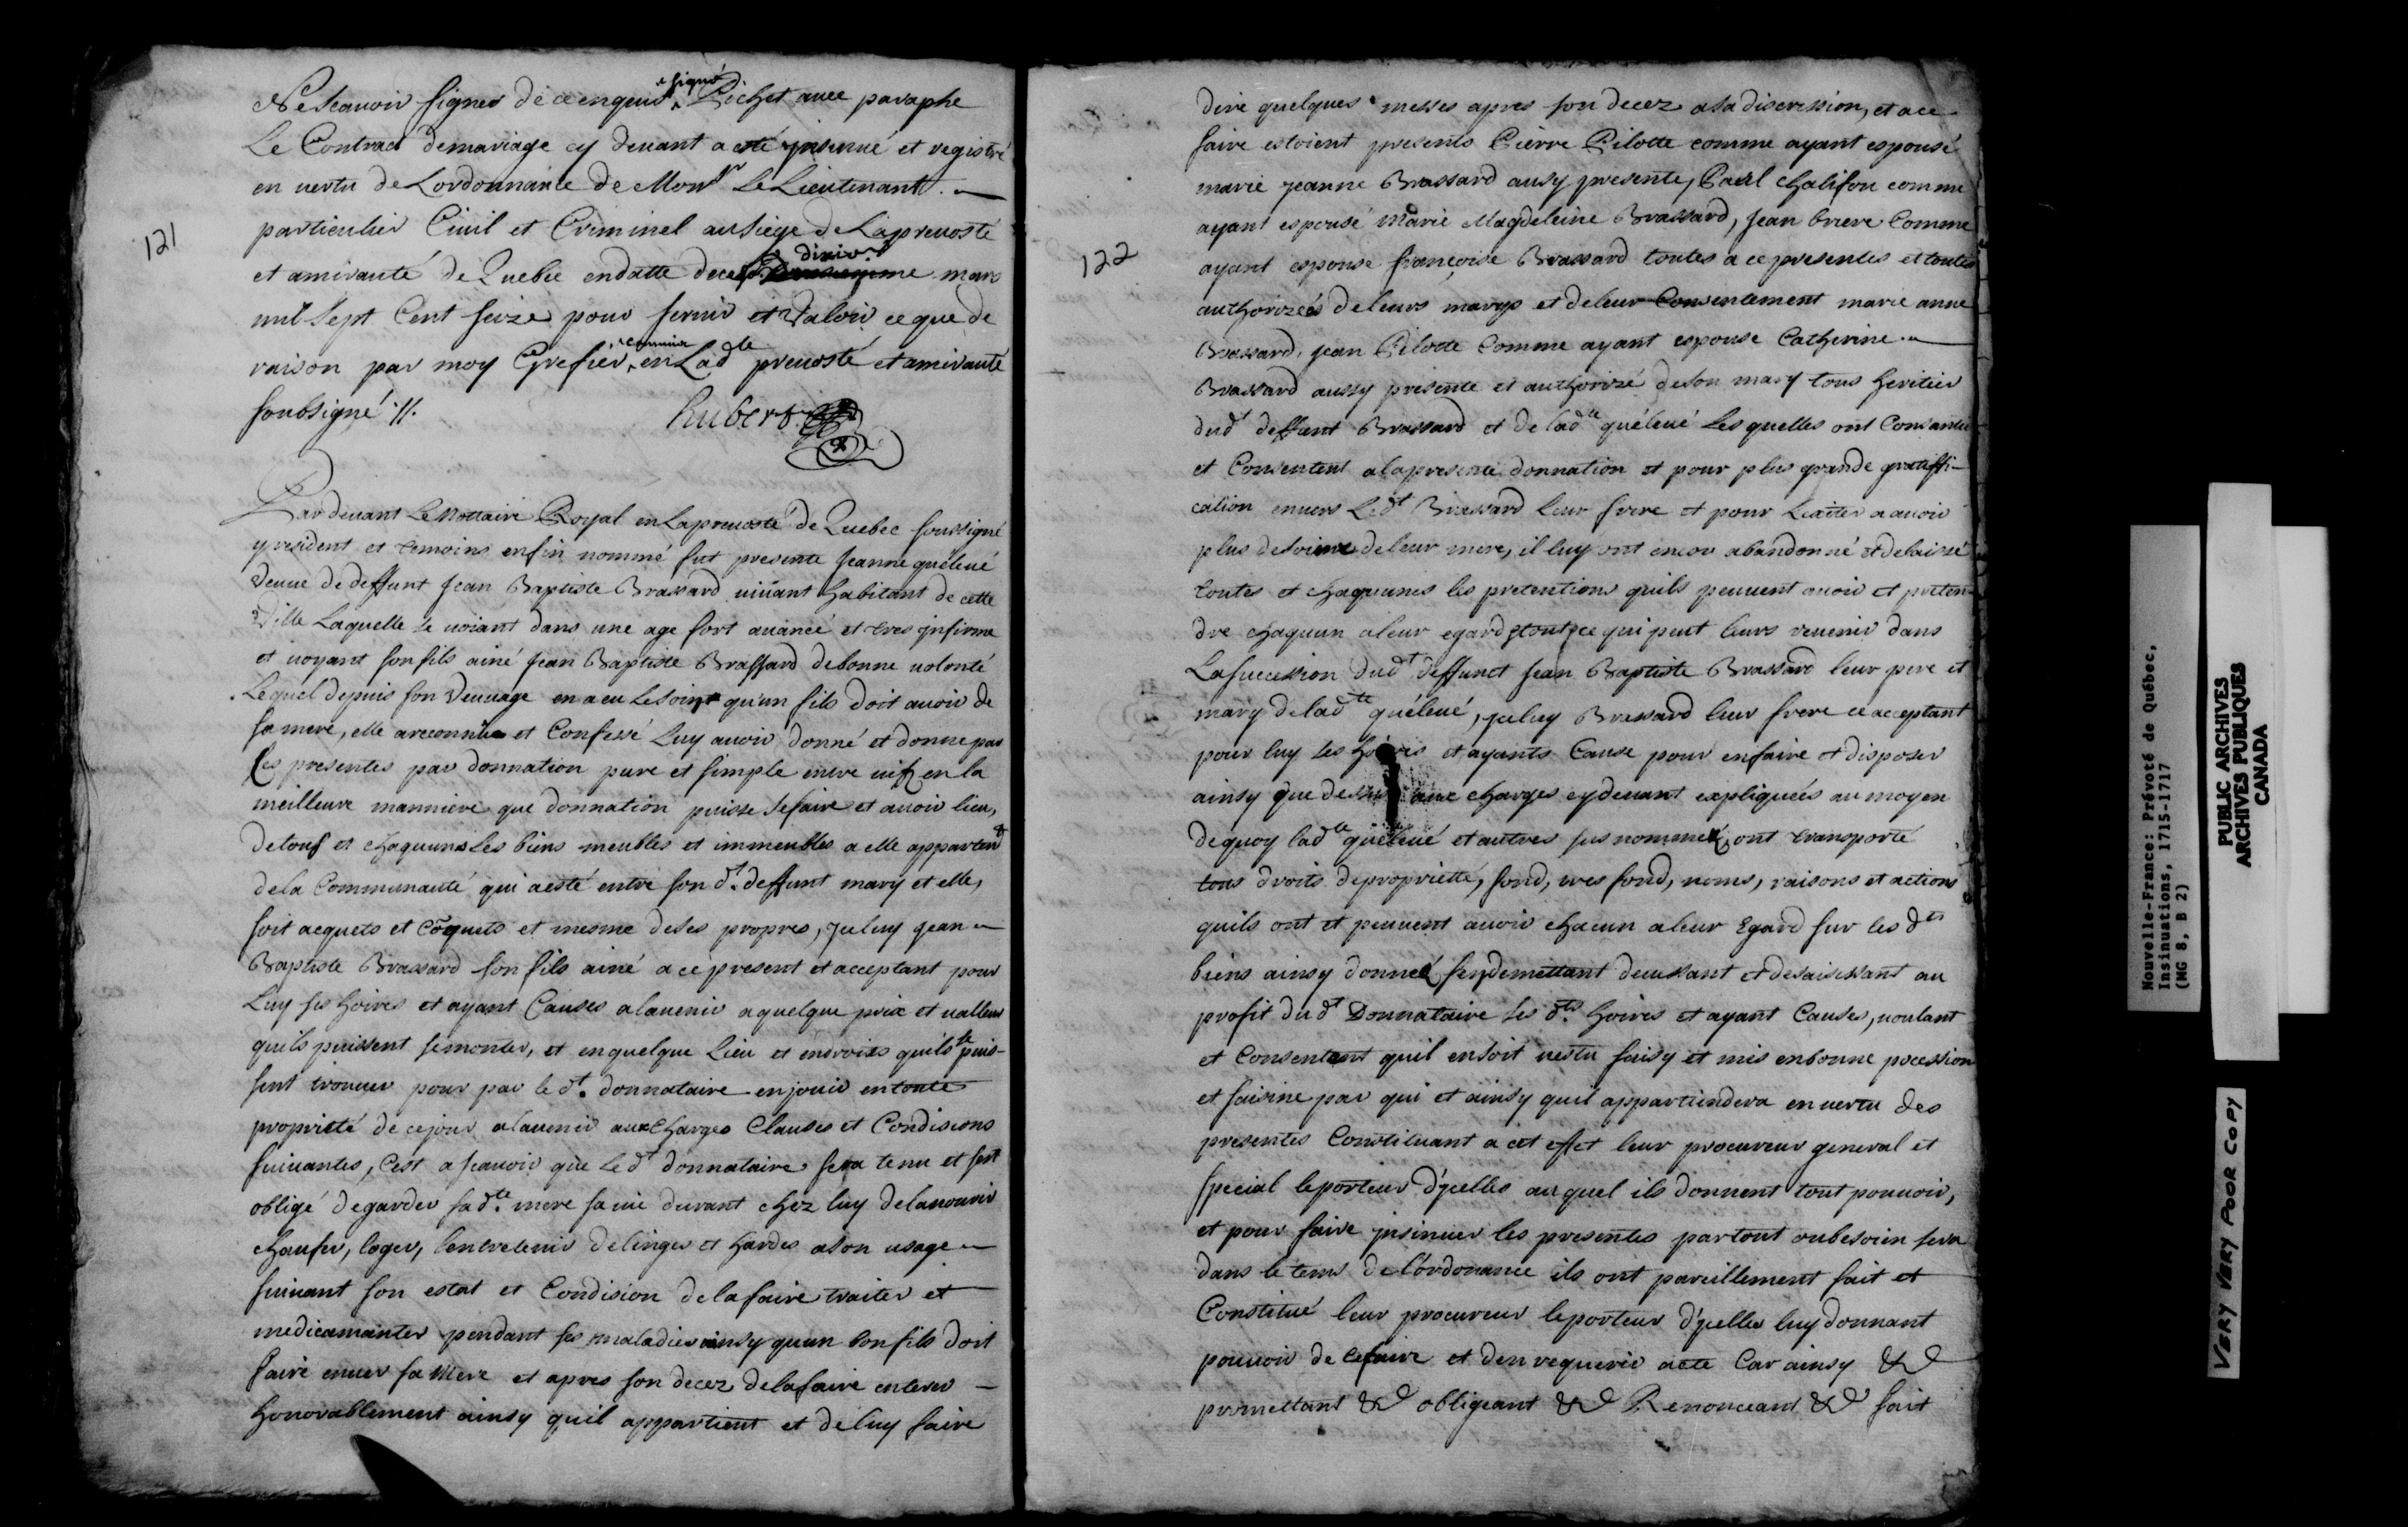 121
Ne Scavoir signer de ce enquis ^ e signé Pichet avec paraphe
Le Contract demariage cy devant a eté ynsinué et registré
en vertu de Lordonnance de Monsr Le Lieutenant
particulier Civil et Criminel au siege de Laprevosté
et amirauté de Quebec endatte du dixiem mars
mil Sept Cent seize pour servir et Valoir ce que de
raison par moy Grefier commis en Ladte prevosté et amirauté
soubsigné ://.
hubert
Pardevant Le Nottaire Royal en Laprevosté de Quebec soussigné
y resident et temoins enfin nommé fut presente Jeanne quéleué
Veuve de deffunt Jean Baptiste Brassard vivant habitant de cette
Ville Laquelle se voiant dans une age fort avancé et tres ynfirme
et voyant son fils ainé Jean Baptiste Brassard debonne volonté
Lequel depuis son Veuvage en a eu Le soin qu'un fils doit avoir de
sa mere, elle a reconnüe et Confessé Luy avoir donné et donne par
Ces presentes par donnation pure et simple entre vifz en la
meilleure manniere que donnation puisse se faire et avoir lieu,
de tous et chaquuns Les biens meubles et immeubles a elle appartent
dela Communauté qui aesté entre son dt. deffunt mary et elle,
soit acquets et cõquets et mesme de ses propres, yceluy Jean
Baptiste Brassard son fils ainé a ce present et acceptant pour
Luy ses hoires et ayant Causes alavenir a quelque prix et valleur
quils puissent semonter, et en quelque Lieu et endroits quils se puis-
sent trouver pour par le dt. donnataire en jouir en toute
proprieté de ce jour alavenir aux Charges Clauses et Condisions
suivantes, C'est a scavoir que Le dt donnataire sera tenu et s'est
obligé degarder sa dte. mere sa vie durant chez luy delanourir
chaufer, loger, l'entretenir delinges et hardes ason usage
suivant son estat et Condision de la faire traiter et
medicamanter pendant ses maladies ainsy quun bon fils doit
faire enver sa Mere et apres son decez dela faire enterer
honorablement ainsy quil appartient et de luy faire
122
dire quelques messes apres son decez a sa discression, et ace
faire estoient presents Pierre Pilotte comme ayant espousé
marie Jeanne Brassard ausy presente, Paul chalifou comme
ayant espousé Marie Magdeleine Brassard, Jean briere Comme
ayant espousé francoise Brassard toutes a ce presentes et toutes
authorizées de leurs marys et de leur Consentement marie anne
Brassard, Jean Pilotte Comme ayant espousé Catherine
Brassard aussy presente et authorizé deson mary tous heritier
dudt deffunt Brassard et de ladte quéleué Les quelles ont Consantie
et Consentent alapresente donnation et pour plus grande gratiffi-
cation envers Ledt Brassard leur frere et pour Lexiter a avoir
plus de soins de leur mere, il luy ont encor abandonné et delaissé
toutes et chaquunes les pretentions quils peuvent avoir et preten-
dre chaquun a leur egard et tout ce qui peut leurs revenir dans
La succession dudt deffunct Jean Baptiste Brassard leur pere et
mary de ladte quéleué, yceluy Brassard leur frere ce acceptant
pour luy ses hoires et ayants Cause pour en faire et disposer
ainsy que dessus aux charges cy devant expliqueés au moyen
dequoy ladte quéleué et autres sus nommez, ont transporté
tous droits de proprietté, fond, tres fond, noms, raisons et actions
quils ont et peuvent avoir chacun a leur Egard sur les dts
biens ainsy donnez sen demettant devessant et desaisissant au
profit dudt Donnataire ses dts. hoires et ayant Causes, voulant
et Consentent quil en soit vestu saisy et mis en bonne pocession
et saisine par qui et ainsy quil appartiendera en vertu des
presentes Constituant a cet effet leur procureur general et
special le porteur d'ycelles au quel ils donnent tout pouvoir,
et pour faire ynsinuer les presentes partout oubesoin sera
dans le tems de L'ordonance ils ont pareillement fait et
Constitué leur procureur le porteur d'ycelles luy donnant
pouvoir de ce faire et den requerir acte Car ainsy &c
promettant &c obligeant &c Renonceant &c fait
Nouvelle-France: Prévoté de Québec,
Insinuations, 1715-1717
(MG 8, B 2)
PUBLIC ARCHIVES
ARCHIVES PUBLIQUES
CANADA
VERY VERY POOR COPY